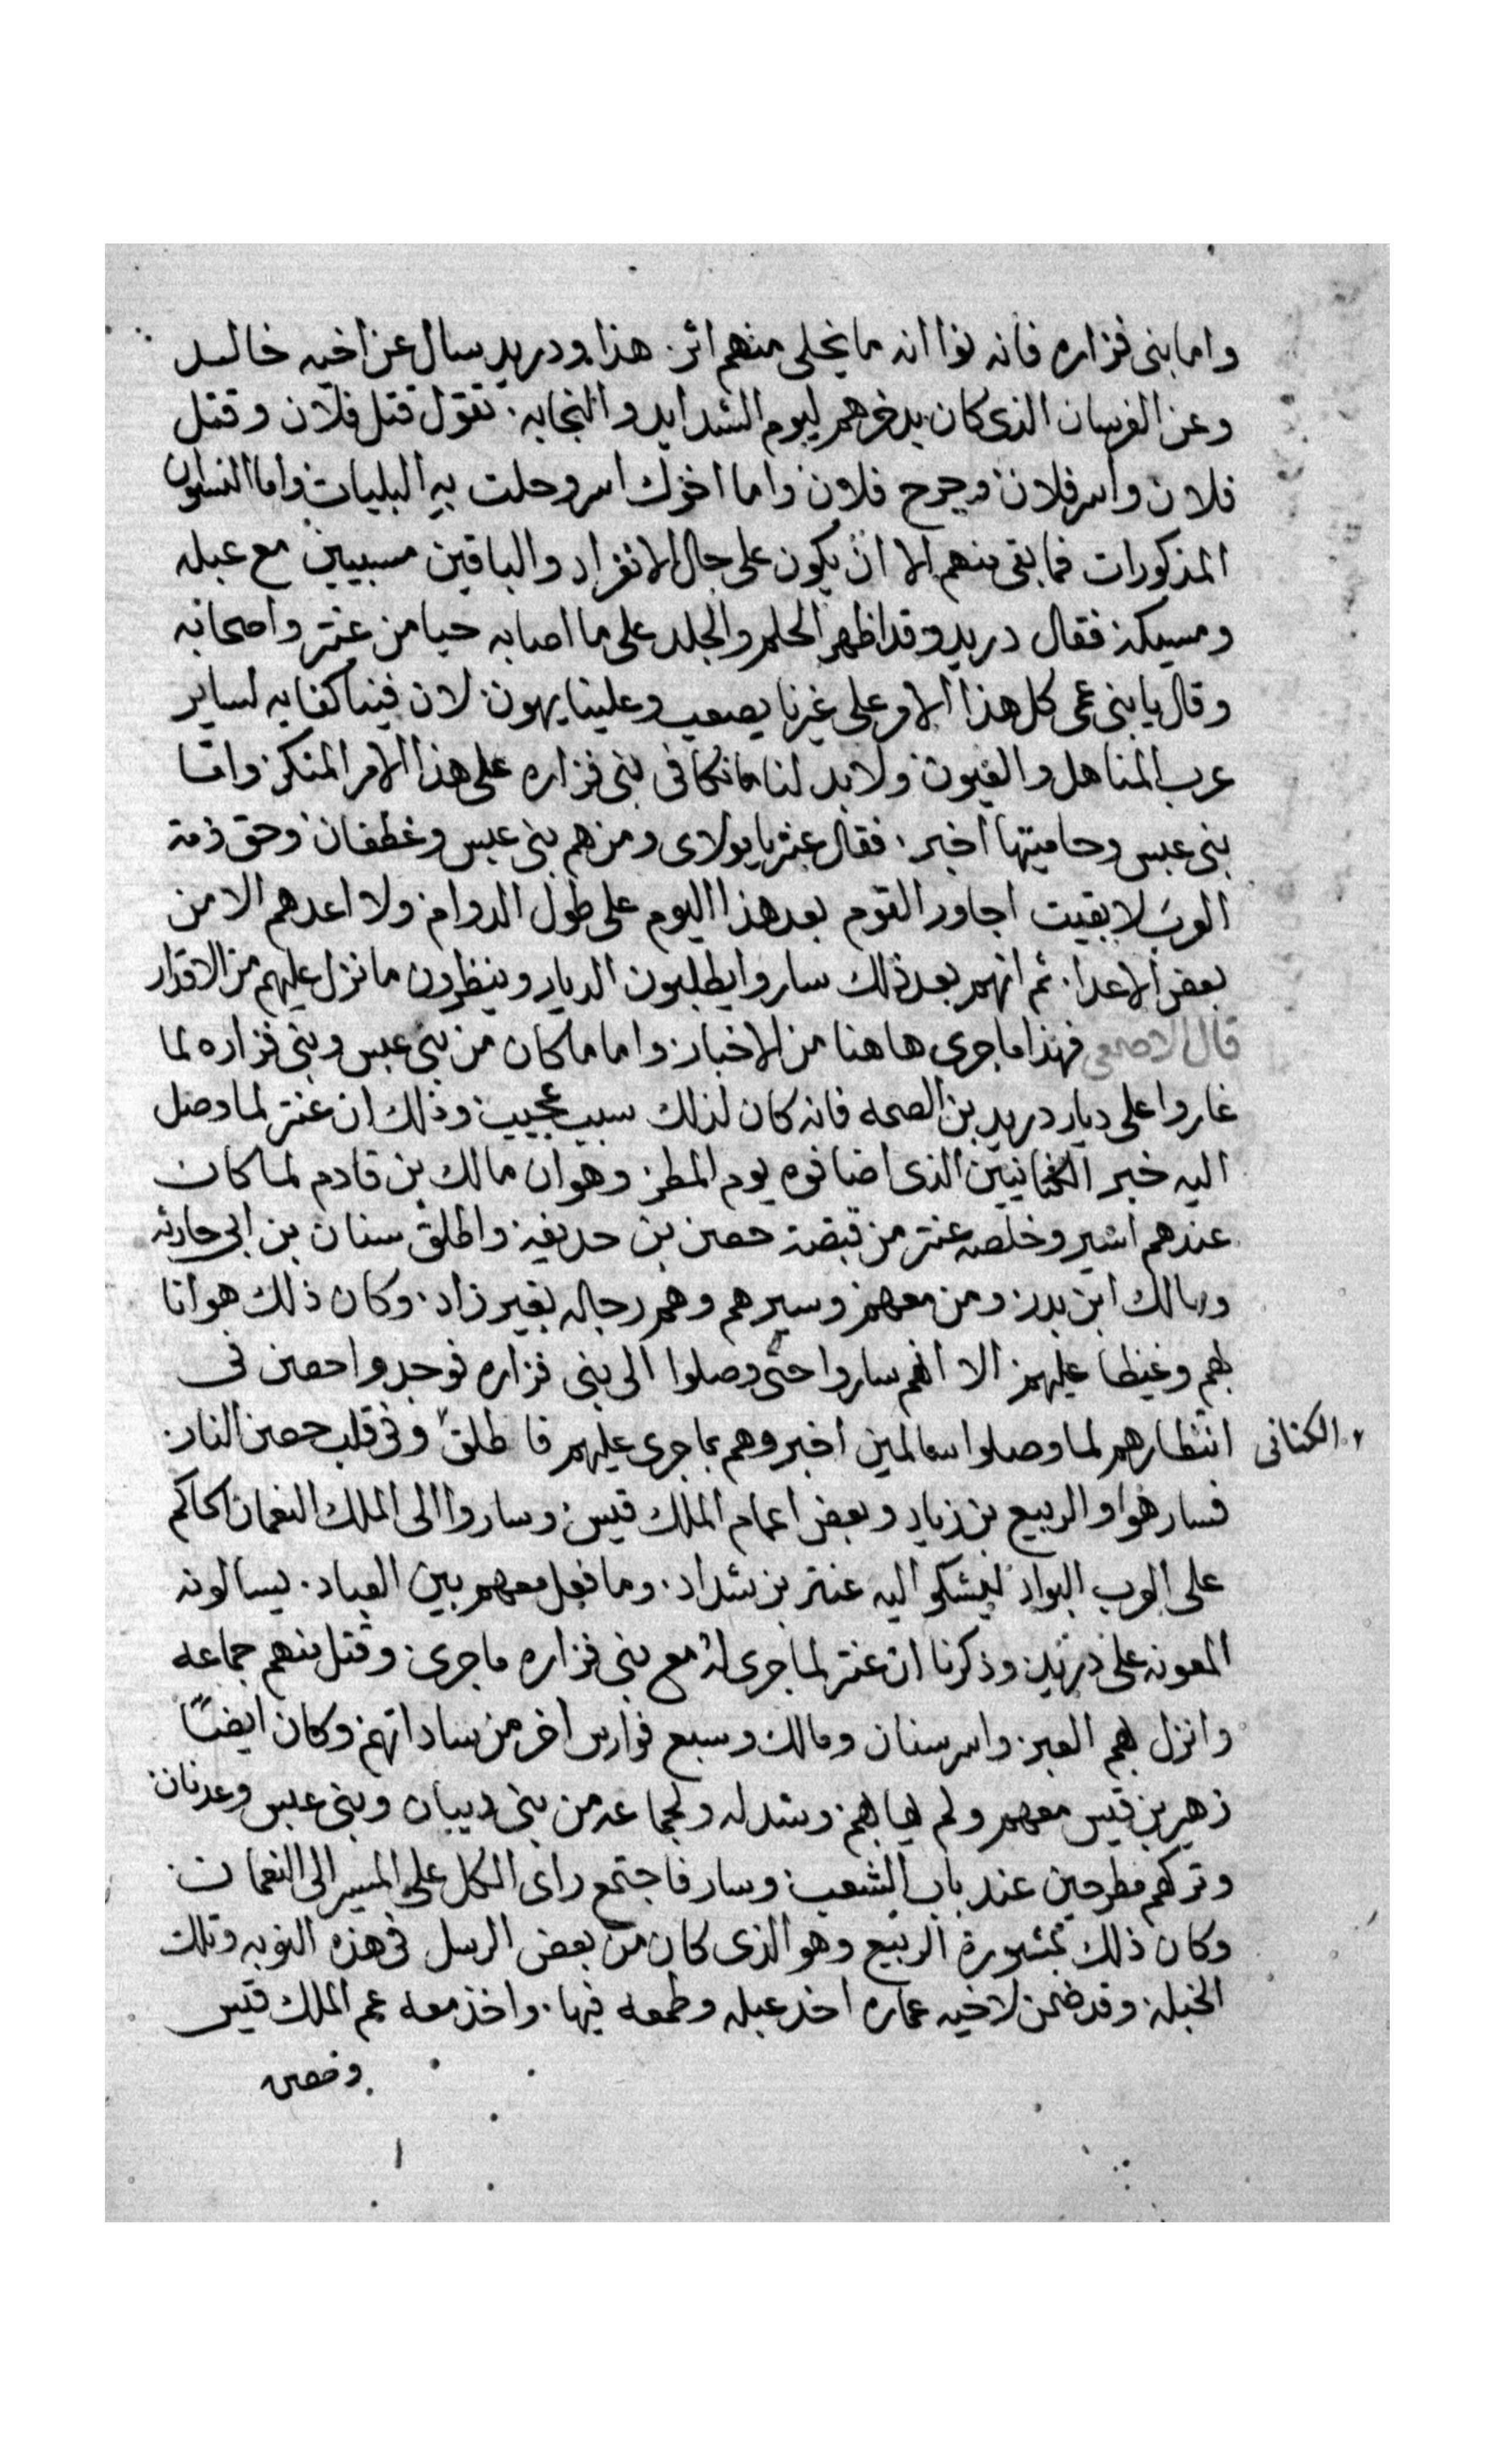 واما بنى فزاره فانه نوا انه ما يخلى منهم اثر. هذا ودريد سال عن اخيه خالد
وعن الفرسان الذى كان يدخرهم ليوم الشدايد والنجابه. تقول قتل فلان وقتل
فلان واسر فلان وجرح فلان واما اخوك اسر وحلت به البليات واما النسوان
المذكورات فما بقى منهم الا ان يكون على حال الانفراد والباقين مسبيين مع عبله
ومسيكه فقال دريد وقد اظهر الحلم والجلد على ما اصابه حيا من عنتر واصحابه
وقال يا بنى عمى كل هذا الامر على غيرنا يصعب وعلينا يهون. لان فينا كفايه لساير
عرب المناهل والعيون ولابد لنا ما نكافى بنى فزاره على هذا الامر المنكر واما
بنى عبس وحاميتها اخبر. فقال عنتر يا مولاى ومن هم بنى عبس وغطفان وحق ذمة
العرب لا بقيت اجاور القوم بعد هذا اليوم على طول الدوام ولا اعدهم الا من
بعض الاعدا. ثم انهم بعد ذلك ساروا يطلبون الديار وينظرون ما نزل عليهم من الاقدار
قال الاصمعى فهذا ما جرى هاهنا من الاخبار واما ما كان من بنى عبس وبنى فزاره لما
غاروا على ديار دريد بن الصمه فانه كان لذلك سبب عجيب وذلك ان عنتر لما وصل
اليه خبر الكنانيين الذى اضافوه يوم المطر وهو ان مالك بن قادم لما كان
عندهم اسير وخلصه عنتر من قبضة حصن بن حديفه واطلق سنان بن ابى حارثه
ومالك ابن بدر ومن معهم وسيرهم وهم رجاله بغير زاد. وكان ذلك هوانا
بهم وغيظا عليهم الا انهم ساروا حتى وصلوا الى بنى فزاره فوجدوا حصن فى
انتظارهم لما وصلوا سالمين اخبروهم بما جرى عليهم فاطلق وفى قلب حصن النار.
الكنانى
فسار هوا والربيع بن زياد وبعض اعمام الملك قيس وساروا الى الملك النعمان الحاكم
على العرب البواد ليشكوا اليه عنتر بن شداد. وما فعل معهم بين العباد. يسالونه
المعونه على دريد وذكرنا ان عنتر لما جرى له مع بنى فزاره ما جرى وقتل منهم جماعه
وانزل بهم العبر واسر سنان ومالك وسبع فوارس اخر من ساداتهم وكان ايضًا
زهير بن قيس معهم ولم يهابهم وشد له ولجماعه من بنى دبيان وبنى عبس وعدنان
وتركهم مطرحين عند باب الشعب وسار فاجتمع راى الكل على المسير الى النعمان
وكان ذلك بمشورة الربيع وهو الذى كان من بعض الرسل فى هذه النوبه وتلك
الخبله وقد ضمن لاخيه عماره اخد عبله وطمعه فيها. واخذ معه عم الملك قيس
وحصن